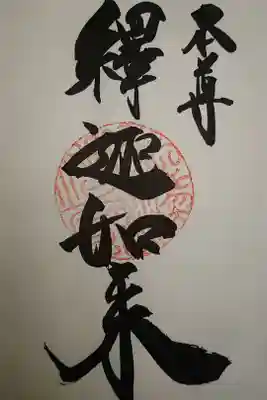 本尊
釋迦如来